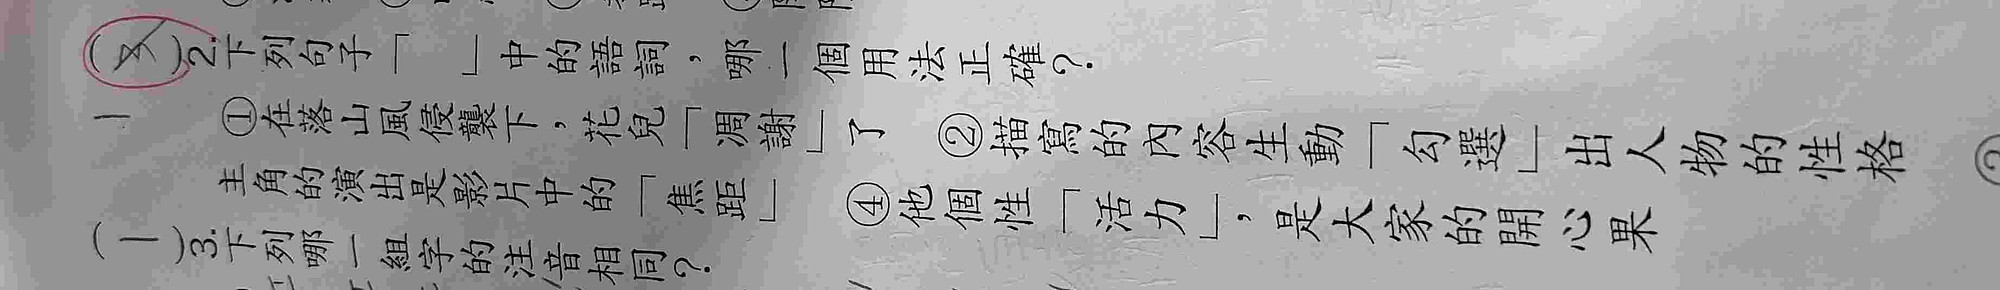 ( )2.下列句子「 」中的語詞，哪一個用法正確？
①在落山風侵襲下，花兒「凋謝」了 ②描寫的內容生動「勾選」出人物的性格
主角的演出是影片中的「焦距」 ④他個性「活力」，是大家的開心果
(一)3.下列哪一組字的注音相同？